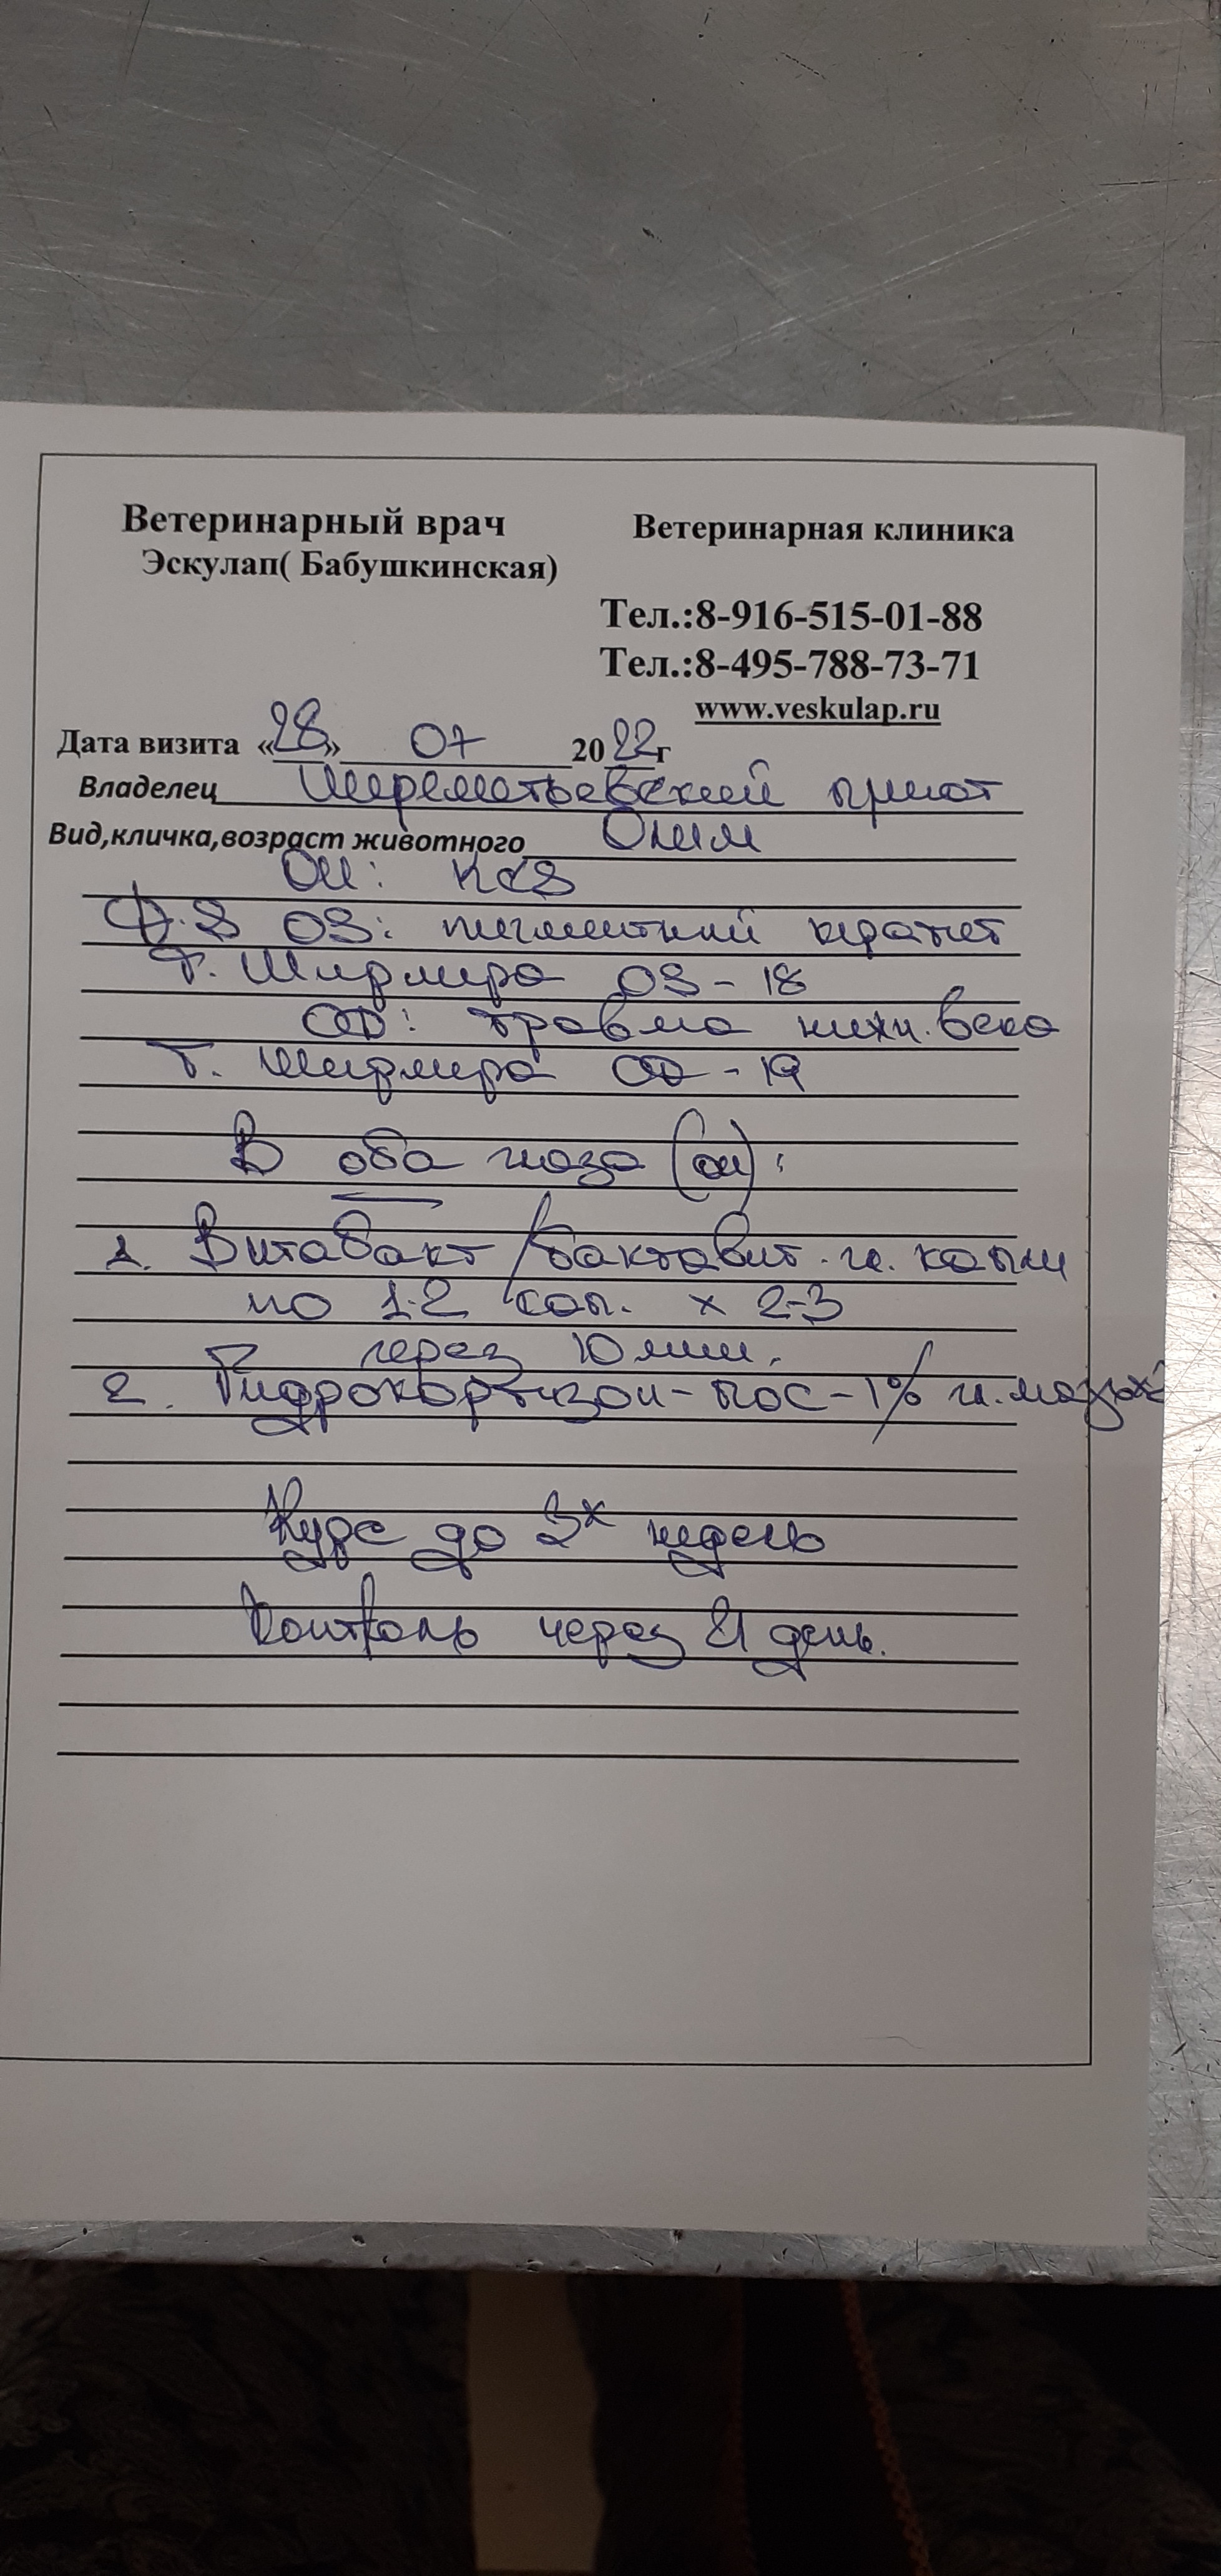 Ветеринарный врач
Ветеринарная клиника
Эскулап( Бабушкинская)
Тел.:8-916-515-01-88
Тел.:8-495-788-73-71
www.veskulap.ru
Дата визита «28» 07 2022г
Владелец Шереметьевский приют
Вид,кличка,возраст животного
ОИ: KCS
OS: пигментный кератит
т. Ширмера OS - 18
OD: травма нижн. века
Т. Ширмера OD - 19
В оба глаза (ои):
1. Витабакт /бактавит. гл. капли
по 1-2 кап. х 2-3
через 10 мин.
2. Гидрокортизон-пос-1% гл. мазь
Курс до 3х недель
Контроль через 21 день.